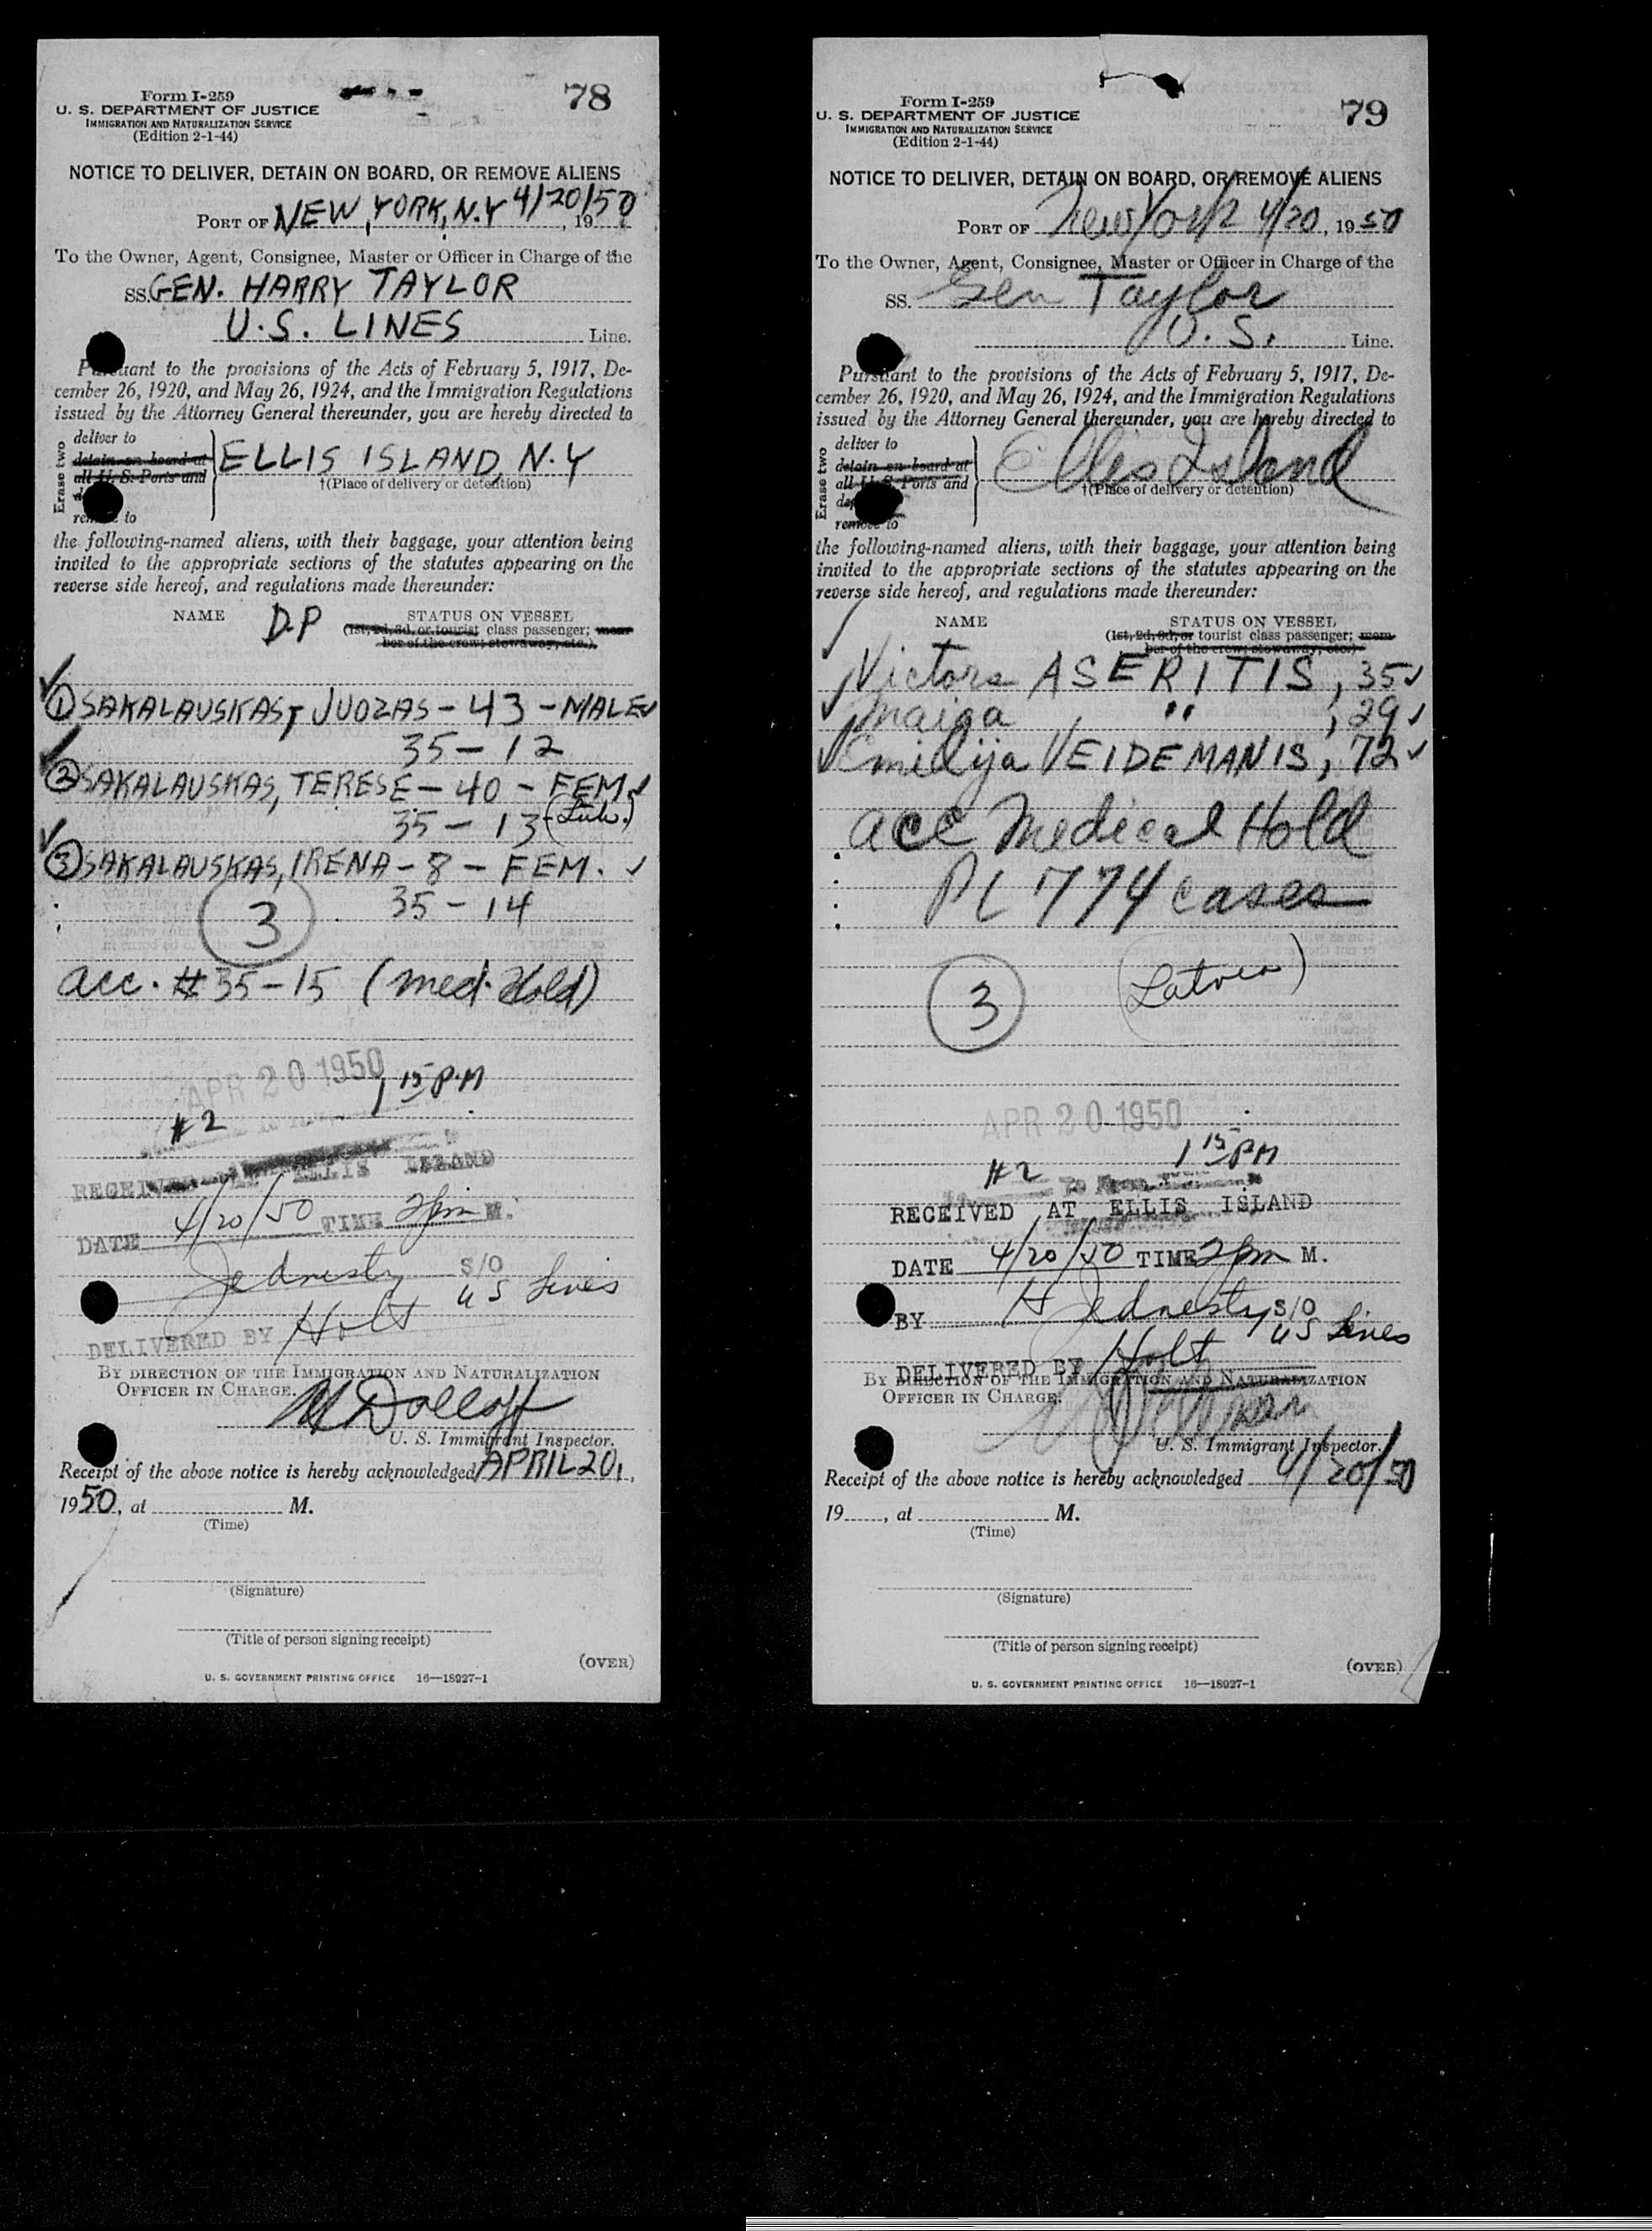 Form I-259
U. S. DEPARTMENT OF JUSTICE
IMMIGRATION AND NATURALIZATION SERVICE
(Edition 2-1-44)
78
NOTICE TO DELIVER, DETAIN ON BOARD, OR REMOVE ALIENS
PORT OF NEW YORK, N.Y 4/20/50, 19
To the Owner, Agent, Consignee, Master or Officer in Charge of the
SS. GEN. HARRY TAYLOR
U.S. LINES Line.
Pursuant to the provisions of the Acts of February 5, 1917, De-
cember 26, 1920, and May 26, 1924, and the Immigration Regulations
issued by the Attorney General thereunder, you are hereby directed to
Erase two
deliver to
detain on board at
all U. S. Ports and
remove to
ELLIS ISLAND, N.Y
†(Place of delivery or detention)
the following-named aliens, with their baggage, your attention being
invited to the appropriate sections of the statutes appearing on the
reverse side hereof, and regulations made thereunder:
NAME D.P STATUS ON VESSEL
(1st, 2d, 3d, or tourist class passenger; mem-
ber of the crew; stowaway, etc.)
① SAKALAUSKAS, JUOZAS - 43 - MALE ✓
35 - 12
② SAKALAUSKAS, TERESE - 40 - FEM. ✓
35 - 13 (Lith.)
③ SAKALAUSKAS, IRENA - 8 - FEM. ✓
35 - 14
3
acc. # 35-15 (med. Hold)
APR 20 1950
1 15 P.M
#2
RECEIVED AT ELLIS ISLAND
DATE 4/20/50 TIME 2pm M.
S/O
US Lines
DELIVERED BY Holt
BY DIRECTION OF THE IMMIGRATION AND NATURALIZATION
OFFICER IN CHARGE.
U. S. Immigrant Inspector.
Receipt of the above notice is hereby acknowledged APRIL 20,
1950, at M.
(Time)
(Signature)
(Title of person signing receipt)
(OVER)
U. S. GOVERNMENT PRINTING OFFICE 16—18927-1
Form I-259
U. S. DEPARTMENT OF JUSTICE
IMMIGRATION AND NATURALIZATION SERVICE
(Edition 2-1-44)
79
NOTICE TO DELIVER, DETAIN ON BOARD, OR REMOVE ALIENS
PORT OF New York 4/20, 1950
To the Owner, Agent, Consignee, Master or Officer in Charge of the
SS. Gen Taylor
U. S. Line.
Pursuant to the provisions of the Acts of February 5, 1917, De-
cember 26, 1920, and May 26, 1924, and the Immigration Regulations
issued by the Attorney General thereunder, you are hereby directed to
Erase two
deliver to
detain on board at
all U. S. Ports and
remove to
Ellis Island
†(Place of delivery or detention)
the following-named aliens, with their baggage, your attention being
invited to the appropriate sections of the statutes appearing on the
reverse side hereof, and regulations made thereunder:
NAME STATUS ON VESSEL
(1st, 2d, 3d, or tourist class passenger; mem-
ber of the crew; stowaway, etc.)
✓ Victors ASERITIS, 35 ✓
✓ Maiga " , 29 ✓
✓ Emilija VEIDEMANIS, 72 ✓
acc Medical Hold
PL 774 cases
3 (Latvia)
APR 20 1950
1 15 PM
#2
RECEIVED AT ELLIS ISLAND
DATE 4/20/50 TIME 2pm M.
BY S/O
US Lines
DELIVERED BY Holt
BY DIRECTION OF THE IMMIGRATION AND NATURALIZATION
OFFICER IN CHARGE.
U. S. Immigrant Inspector.
Receipt of the above notice is hereby acknowledged 4/20/50
19, at M.
(Time)
(Signature)
(Title of person signing receipt)
(OVER)
U. S. GOVERNMENT PRINTING OFFICE 16—18927-1